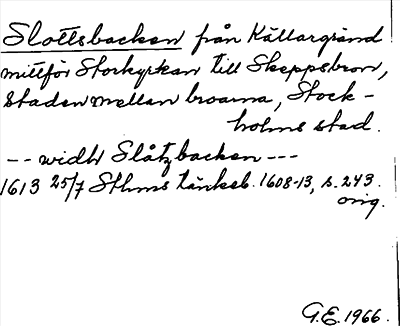 Slottsbacken från Källargränd
mittför Storkyrkan till Skeppsbron,
Staden mellan broarna, Stock-
holms stad.
-- widh Slåtzbacken ---
1613 25/7 Sthms tänkeb. 1608-13, s. 243.
orig.
G.E. 1966.